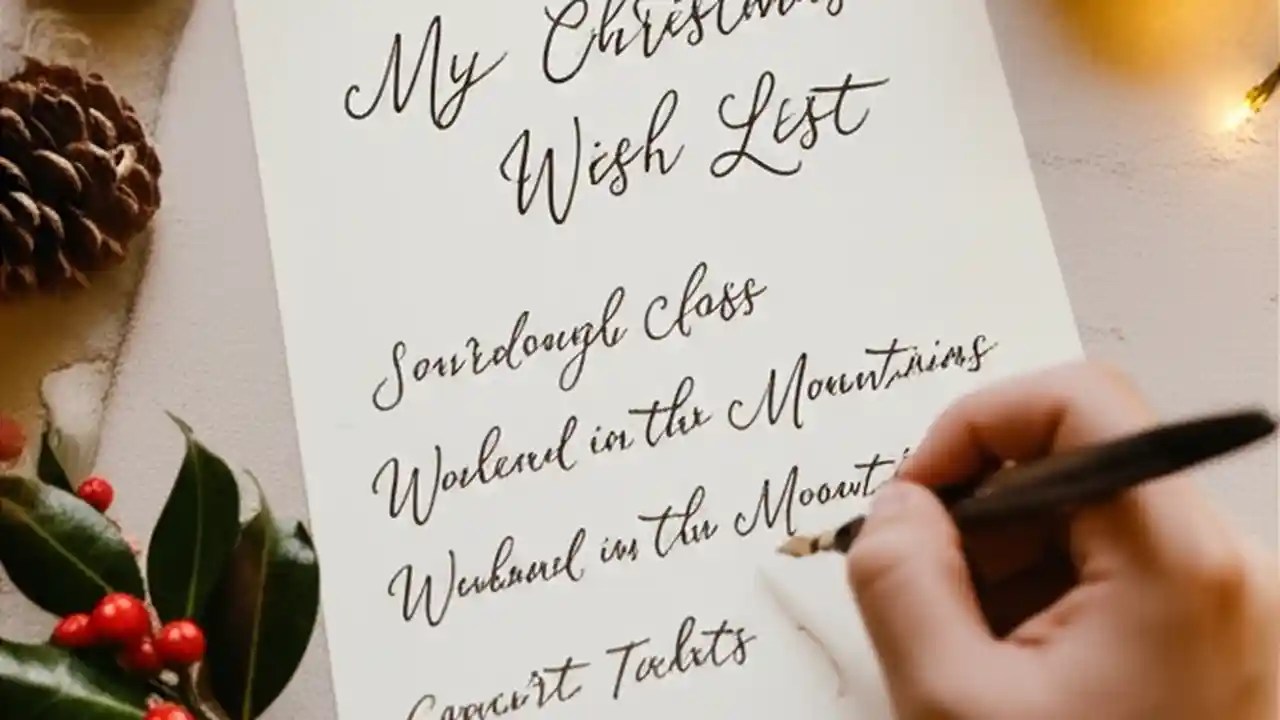 My Christmas
Wish List
Sourdough Class
Weekend in the Mountains
Weekend in the Mount
Concert Tickets